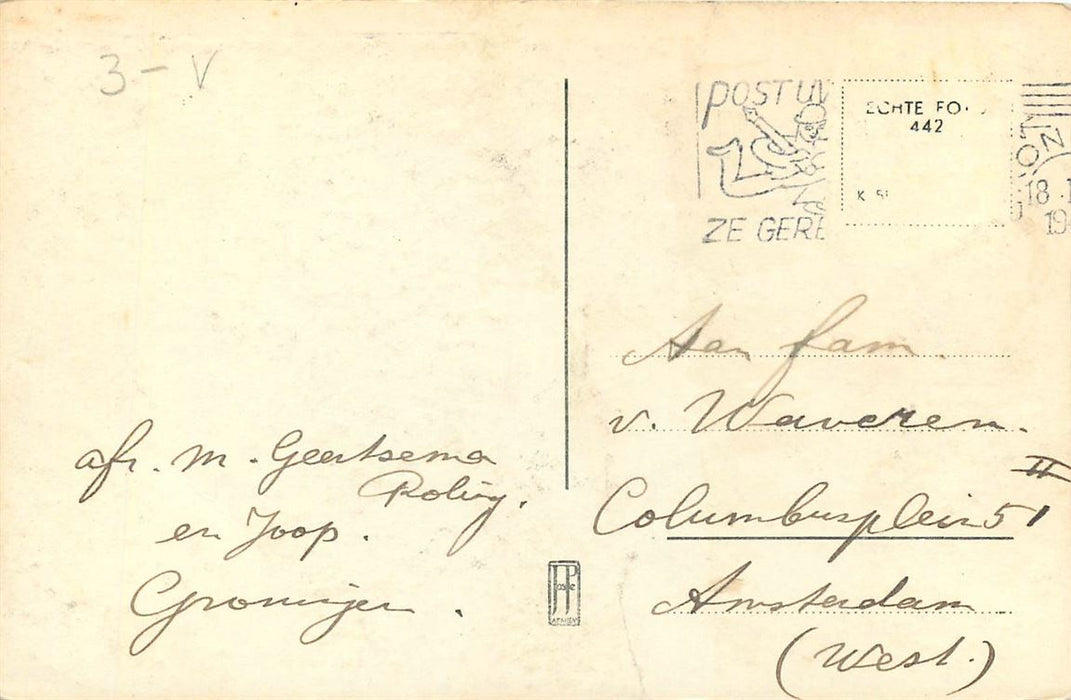 3 - V
POST UW
ZE GERE
ECHTE FO
442
K 51
18
19
afz. M. Geertsema
Roling.
en Joop.
Groningen.
Aan fam.
v. Waveren.
Columbusplein 51 II
Amsterdam
(West.)